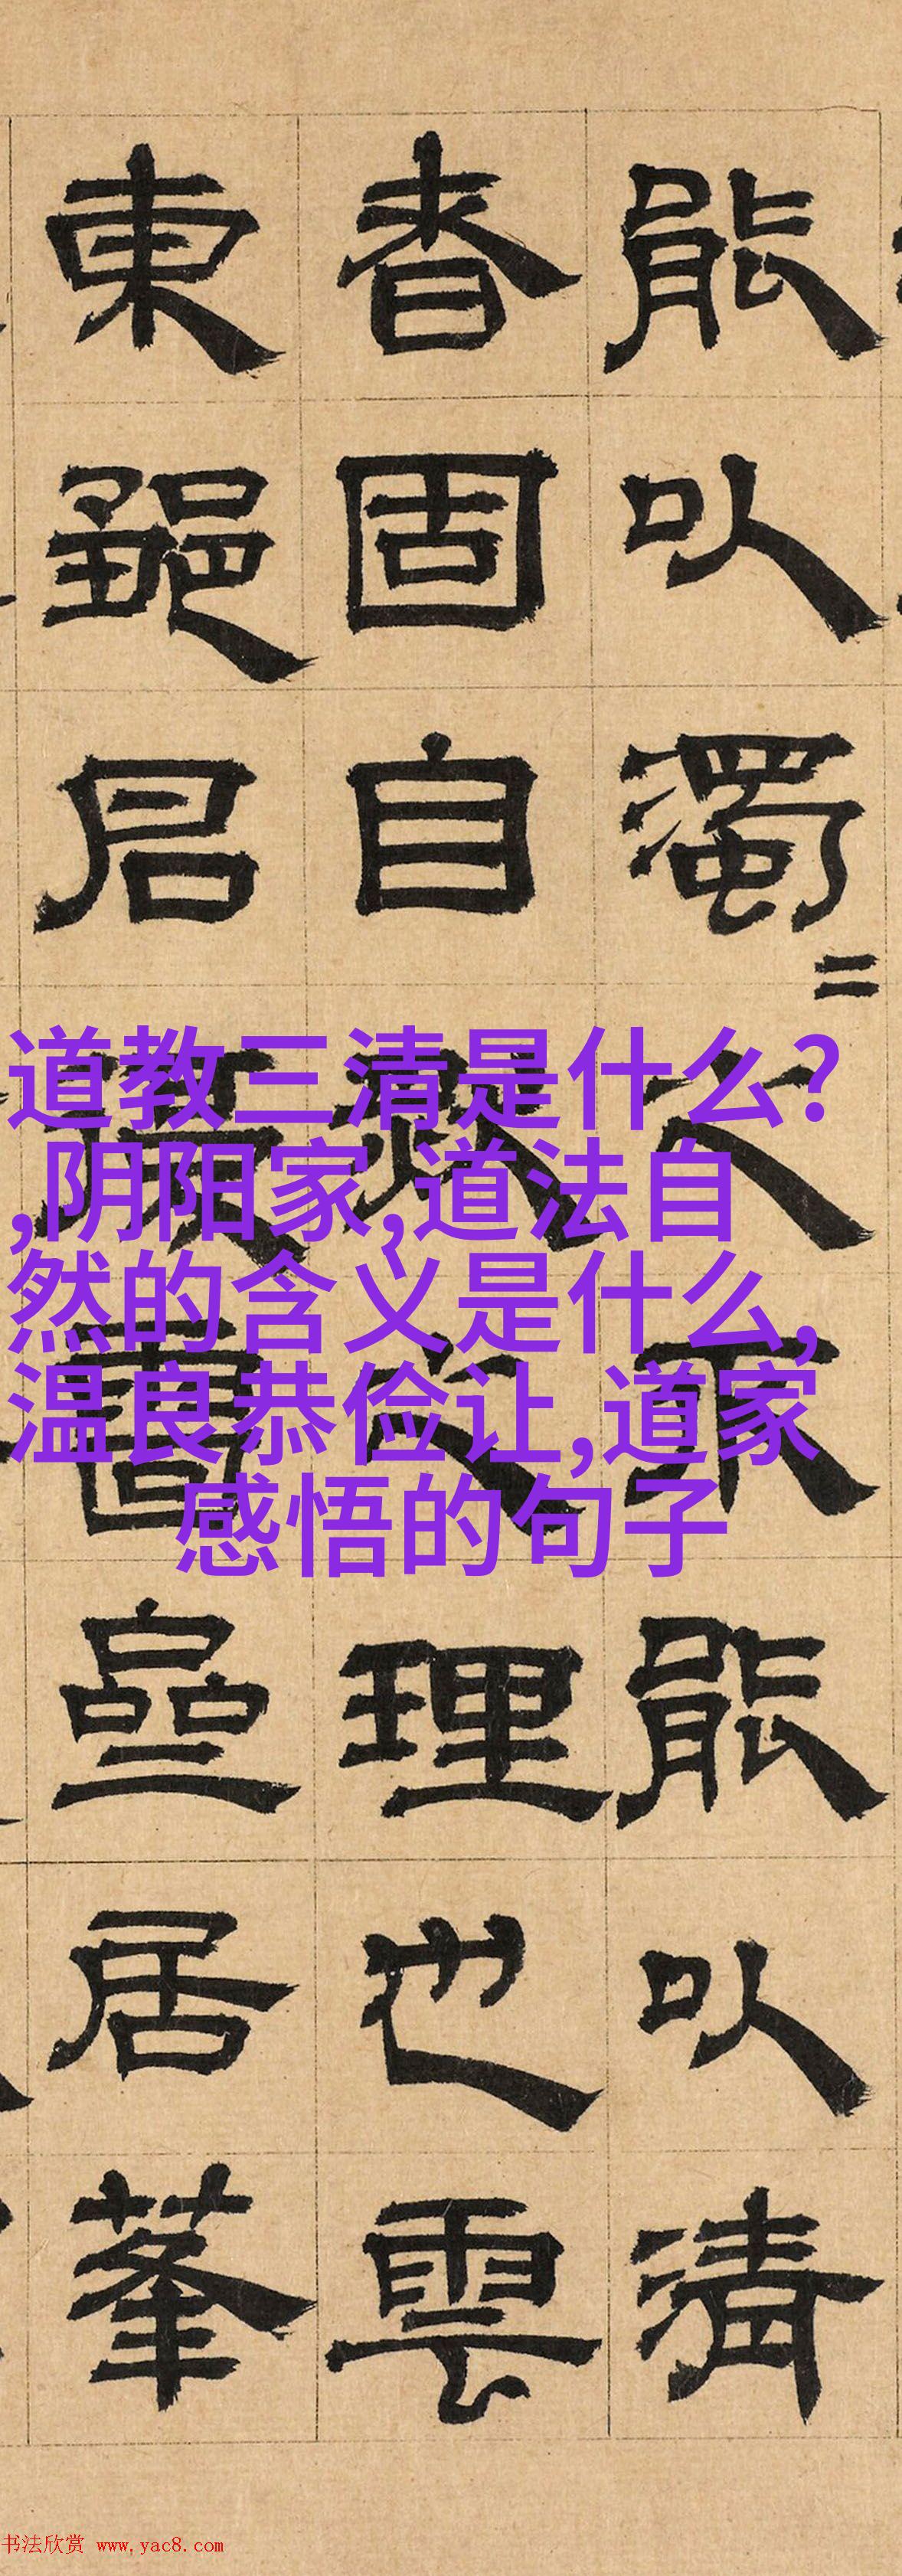 能以濁不能以清
者固自然之理也雲
東居
道教三清是什么?
,阴阳家,道法自
然的含义是什么,
温良恭俭让,道家
感悟的句子
书法欣赏 www.yac8.com